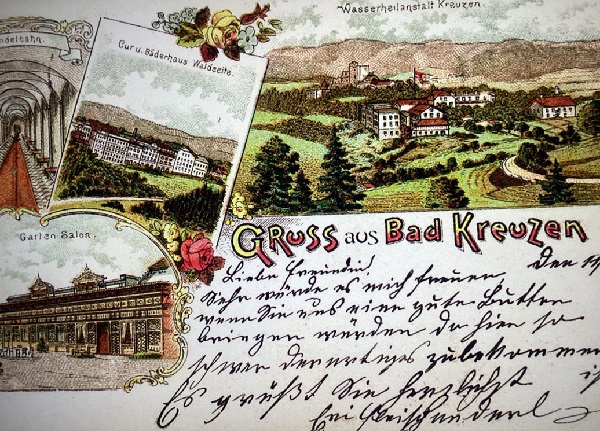 Wasserheilanstalt Kreuzen.
ndelbahn.
Cur u. Bäderhaus Waldseite.
Garten Salon.
Gruss aus Bad Kreuzen
den 19
Liebe Freundin!
Sehr würde es mich freuen,
wenn Sie uns eine gute Butter
bringen würden da hier so
schwer derartiges zubekommen
is
Es grüßt Sie herzlichst